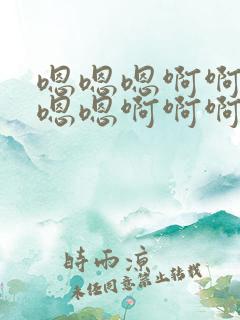 嗯嗯嗯啊啊
嗯嗯啊啊啊
時雨涼
未经同意禁止转载